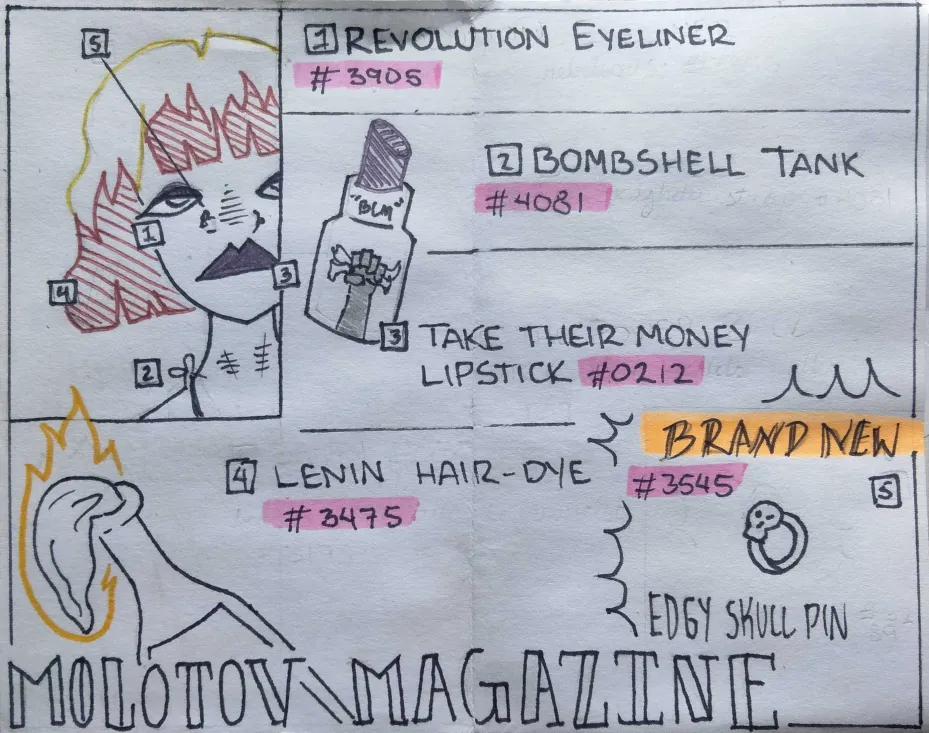 5
1 REVOLUTION EYELINER
#3905
2 BOMBSHELL TANK
#4081
"BLM"
1
3
4
2
3 TAKE THEIR MONEY
LIPSTICK #0212
BRAND NEW
#3545
5
4 LENIN HAIR-DYE
#3475
EDGY SKULL PIN
MOLOTOV MAGAZINE